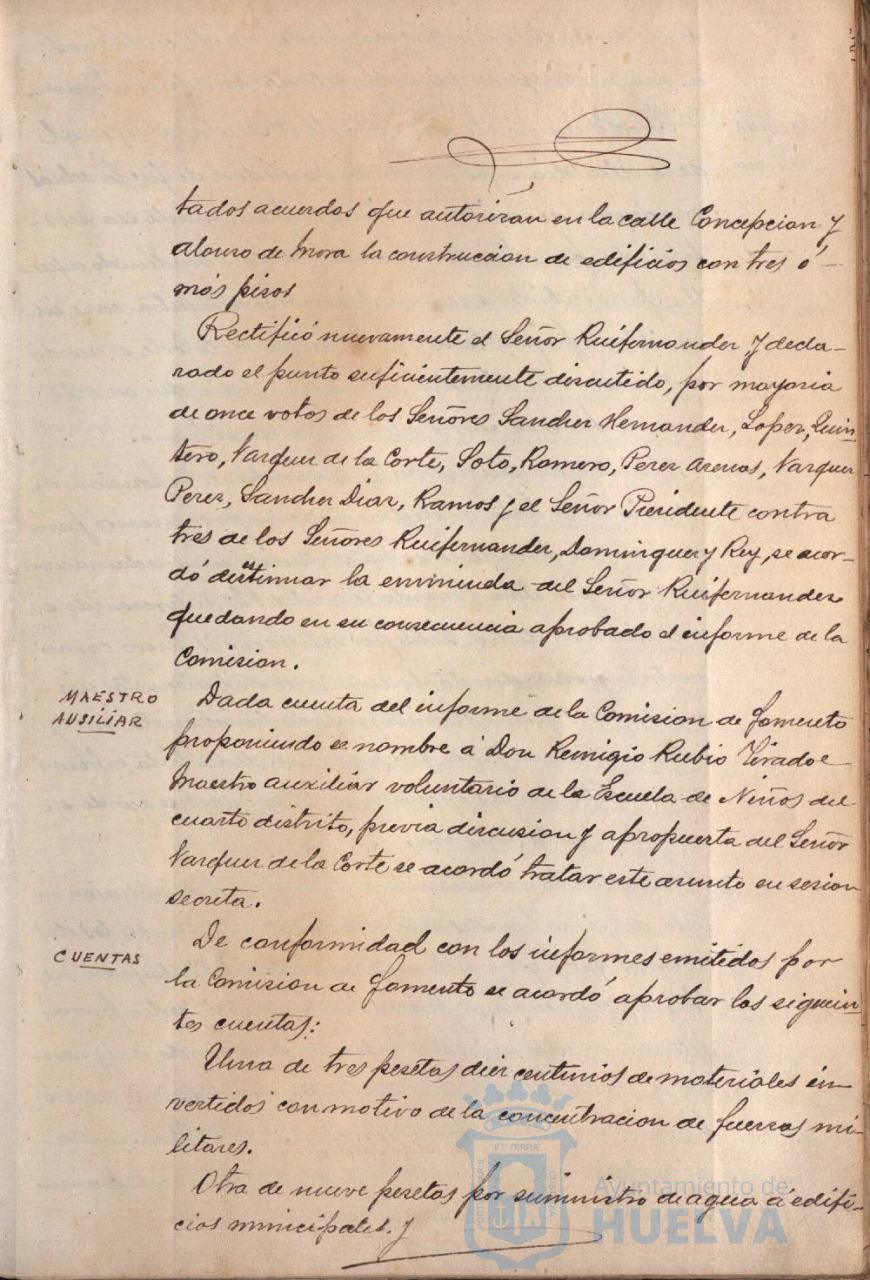 tados acuerdos que autorizan en la calle Concepcion y
Alonso de Mora la construccion de edificios con tres ó
más pisos
Rectificó nuevamente el Señor Ruifernandez y decla-
rado el punto suficientemente discutido, por mayoria
de once votos de los Señores Sanchez Hernandez, Lopez, Quin
tero, Vazquez de la Corte, Soto, Romero, Perez Arenas, Vazquez
Perez, Sanchez Diaz, Ramos y el Señor Presidente contra
tres de los Señores Ruifernandez, Dominguez y Rey, se acor-
dó desestimar la enmienda del Señor Ruifernandez
quedando en su consecuencia aprobado el informe de la
Comision.
MAESTRO
AUSILIAR
Dada cuenta del informe de la Comision de fomento
proponiendo se nombre á Don Remigio Rubio Tirado
Maestro auxiliar voluntario de la Escuela de Niños del
cuarto distrito, previa discusion y apropuesta del Señor
Vazquez de la Corte se acordó tratar este asunto en sesion
secreta.
CUENTAS
De conformidad con los informes emitidos por
la Comision de fomento se acordó aprobar las siguien
tes cuentas:
Una de tres pesetas diez centimos de materiales in-
vertidos con motivo de la concentracion de fuerzas mi-
litares.
Otra de nueve pesetas por suministro de agua á edifi-
cios municipales. y
Ayuntamiento de
HUELVA